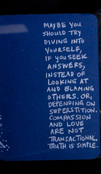 MAYBE YOU
SHOULD TRY
DIVING INTO
YOURSELF,
IF YOU SEEK
ANSWERS,
INSTEAD OF
LOOKING AT
AND BLAMING
OTHERS. OR,
DEPENDING ON
SUPERSTITION.
COMPASSION
AND LOVE
ARE NOT
TRANSACTIONAL.
TRUTH IS SIMPLE.